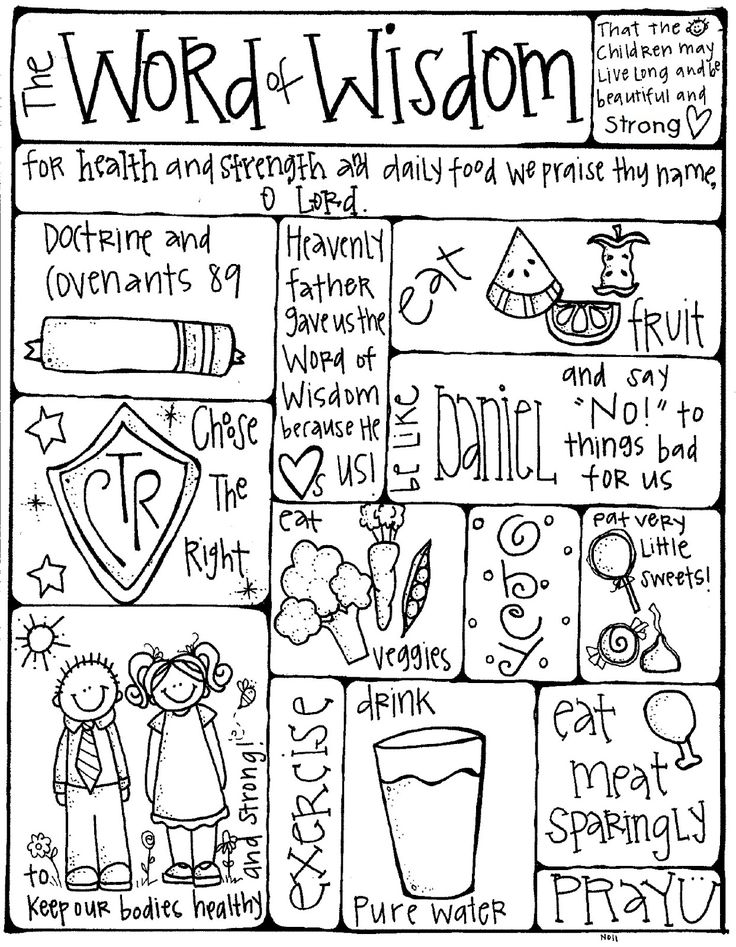 The Word of Wisdom
That the
Children may
Live Long and be
beautiful and
Strong
for health and strength and daily food we praise thy name,
O Lord.
Doctrine and
Covenants 89
Heavenly
father
gave us the
Word of
Wisdom
because He
♡s us!
eat
fruit
be like Daniel
and say
"No!" to
things bad
for us
CTR
Choose
The
Right
eat
veggies
obey
eat very
Little
sweets!
to
keep our bodies healthy
and strong!
exercise
drink
Pure water
eat
meat
sparingly
PRAY Ü
N011